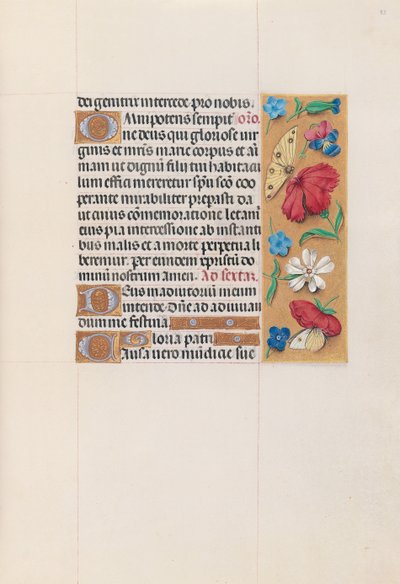 dei genitrix intercede pro nobis.
Omnipotens sempit oro.
ne deus qui gloriose vir
ginis et mris marie corpus et aī
mam ut dignum filij tui habitacu
lum effici mereretur spū sco coo
perante mirabiliter preparasti da
ut cuius cōmemoratione letam
eius pia intercessione ab instanti
bus malis et a morte perpetua li
beremur. per eundem xpristū do
minū nostrum amen. Ad sextā.
Deus in adiutoriū meum
intende. Dñe ad adiuuan
dum me festina.
Gloria patri
Causa vero mūdicie sue